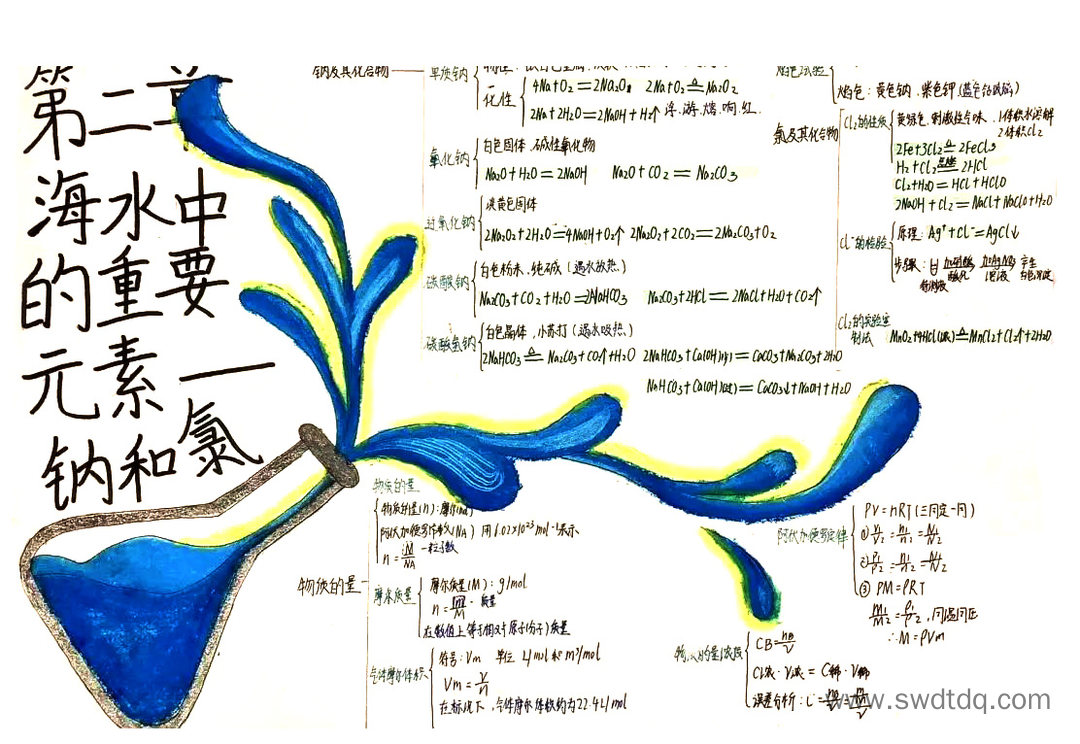 第二章
海水中
的重要
元素——
钠和氯
钠及其化合物
单质钠
化性
4Na+O₂=2Na₂O 2Na+O₂≜Na₂O₂
2Na+2H₂O=2NaOH+H₂↑ 浮.游.熔.响.红.
氧化钠
白色固体.碱性氧化物
Na₂O+H₂O=2NaOH Na₂O+CO₂=Na₂CO₃
过氧化钠
淡黄色固体
2Na₂O₂+2H₂O=4NaOH+O₂↑ 2Na₂O₂+2CO₂=2Na₂CO₃+O₂
碳酸钠
白色粉末.纯碱(遇水放热.)
Na₂CO₃+CO₂+H₂O=2NaHCO₃ Na₂CO₃+2HCl=2NaCl+H₂O+CO₂↑
碳酸氢钠
白色晶体,小苏打(遇水吸热.)
2NaHCO₃≜Na₂CO₃+CO₂↑+H₂O 2NaHCO₃+Ca(OH)₂(少)=CaCO₃+Na₂CO₃+2H₂O
NaHCO₃+Ca(OH)₂(过)=CaCO₃↓+NaOH+H₂O
焰色试验
焰色:黄色钠.紫色钾(蓝色钴玻璃)
氯及其化合物
Cl₂的性质
黄绿色.刺激性气味. 1体积水溶解
2体积Cl₂
2Fe+3Cl₂≜2FeCl₃
H₂+Cl₂=2HCl
Cl₂+H₂O=HCl+HClO
2NaOH+Cl₂=NaCl+NaClO+H₂O
Cl⁻的检验
原理:Ag⁺+Cl⁻=AgCl↓
步骤:
Cl₂的实验室
制法 MnO₂+4HCl(浓)≜MnCl₂+Cl₂↑+2H₂O
物质的量
物质的量
物质的量(n):摩尔
阿伏加德罗常数(NA) 用6.02×10²³mol⁻¹表示
n=N/NA —粒子数
摩尔质量
摩尔质量(M):g/mol
n=m/M 质量
在数值上等于相对原子(分子)质量
气体摩尔体积
符号:Vm 单位 L/mol和m³/mol
Vm=V/n
在标况下,气体摩尔体积约为22.4L/mol
阿伏加德罗定律
PV=nRT(三同定一同)
①V₁/V₂=n₁/n₂=N₁/N₂
②P₁/P₂=n₁/n₂=N₁/N₂
③PM=ρRT
m₁/m₂=ρ₁/ρ₂,同温同压
∴M=ρVm
CB=nB/V
C浓·V浓=C稀·V稀
误差分析:
www.swdtdq.com